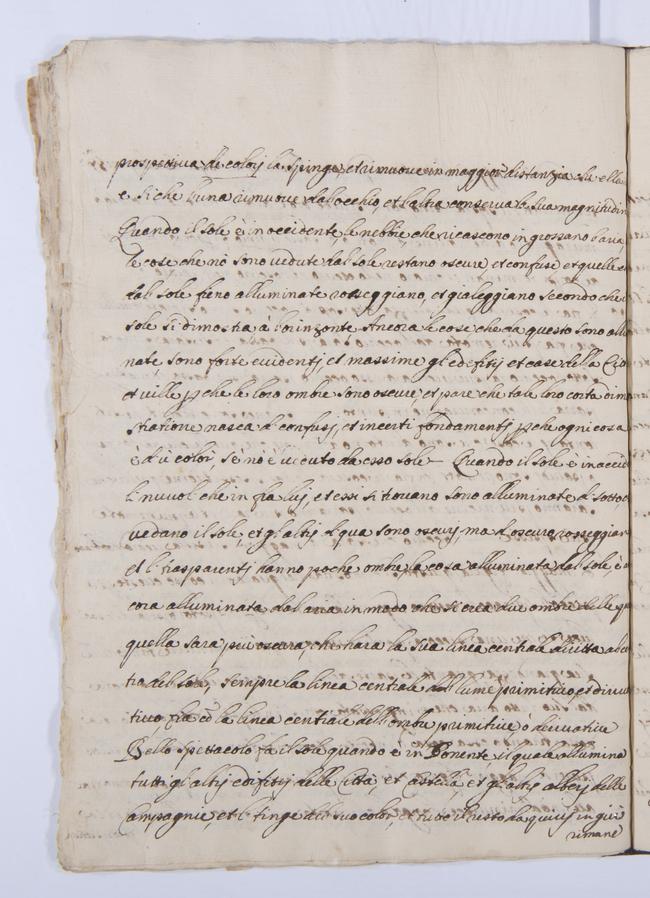 prospettiva de colorj la spinge, et rimuove in maggior distanzia che ella
e si che l'una rimuove dal occhio, et l'altra conserva la sua magnitudin
Quando il sole è in occidente, le nebbie, che ricascono ingrossano l'aria
le cose che nõ sono vedute dal sole restano oscure, et confuse, et quelle che
dal sole fieno alluminate rosseggiano, et gialeggiano secondo che
sole si dimostra à l'orinzonte. Ancora le cose, che da questo sono allu
nate, sono forte evidentj, et massime gl'edifitij et case della Citt
et ville pche le loro ombre sono oscure, et pare che tale loro certa dimo
stratione nasca di confusj, et incerti fondamentj, pche ogni cosa
è d'ũ color, se nõ è veduto da esso sole. Quando il sole è in occid
li nuvoli che in fra luj, et essi si trovano sono alluminate di sotto
vedano il sole, et gl'altrj di qua sono oscurj, ma di oscuro rosseggiar
et li trasparentj hanno poche ombre, la cosa alluminata dal sole, è
cora alluminata dal aria in modo che si crea due ombre delle q
quella sara piu oscura, che hara la sua linea centrale diritta al cen
tro del sole, sempre la linea centrale del lume primitivo et diriva
tivo, fia cõ la linea centrale dell'ombre primitive, ò derivative
Bello spettacolo fa il sole quando è in Ponente il quale allumina
tutti gl'altj edifitij delle Città, et castella, et gl'altj alberj delle
Campagnie, et li tinge del suo color, et tutto il resto da quivj in giù
rimane